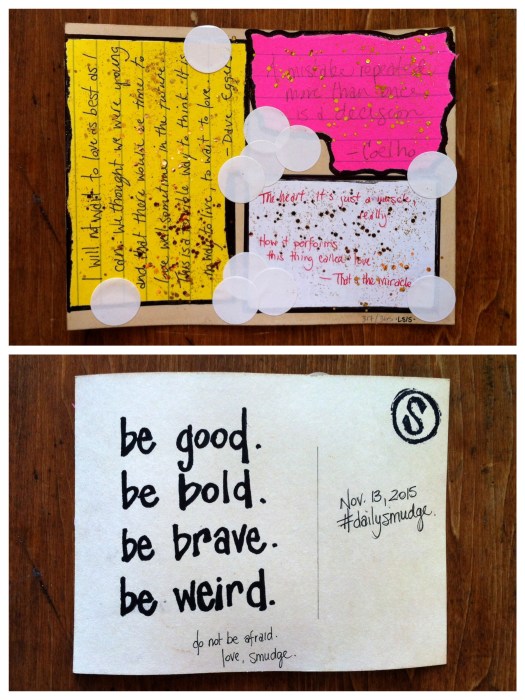 I will not wait to love as best as I
can. We thought we were young
and that there would be time to
love well sometime in the future.
This is a terrible way to think. It is
no way to live, to wait to love.
Dave Eggers
A mistake repeated
more than once
is a decision
- Coelho
The heart. It's just a muscle
really.
How it performs
this thing called love
- That's the miracle
317/365 •LSIS•
be good.
be bold.
be brave.
be weird.
do not be afraid.
love, smudge.
S
Nov. 13, 2015
#dailysmudge.